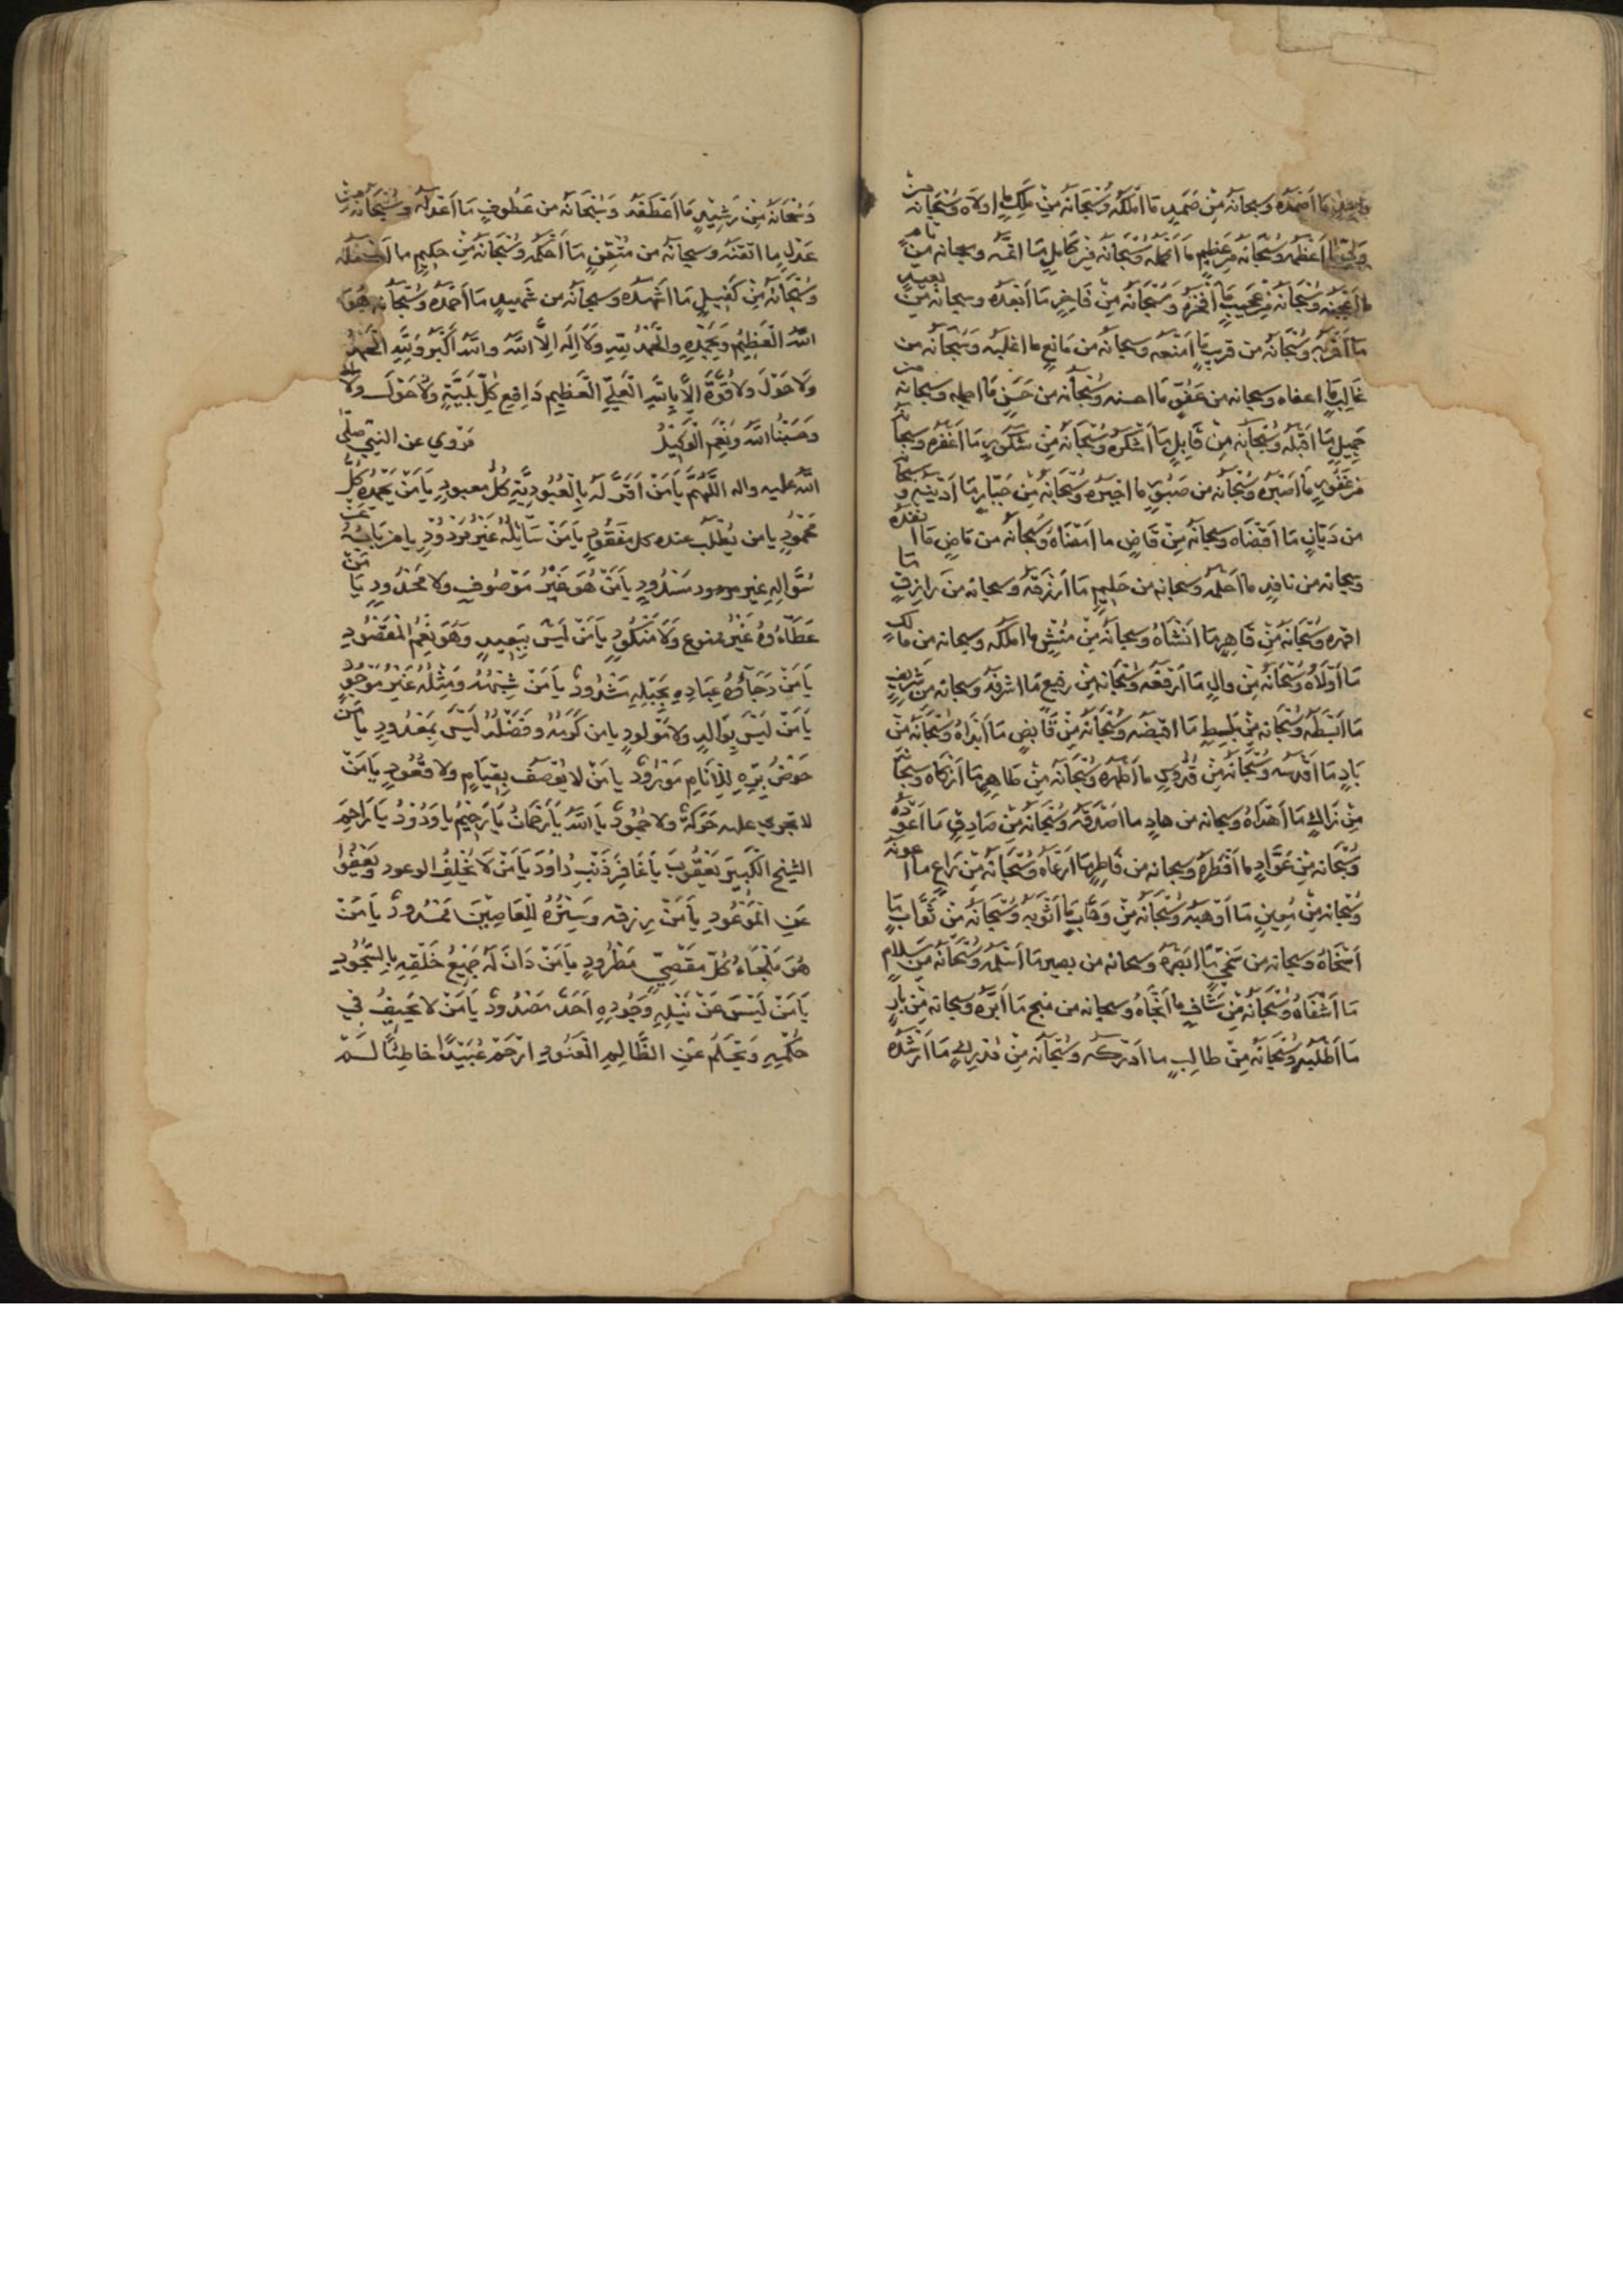 واحد ما اصمده وسبحانه من صَمدٍ ما املكه وسبحانه من مَلِكٍ ما اولاه وسبحانه من
ولي ما اعظمه وسبحانه من عظيم ما اكمله وسبحانه من كامل ما اتمّه وسبحانه من تامٍ
ما اعجبه وسبحانه من عجيب ما افخره وسبحانه من فاخرٍ ما ابعده وسبحانه من بعيدٍ
ما اقربه وسبحانه من قريب ما امنعه وسبحانه من مانع ما اغلبه وسبحانه من
غالبٍ ما اعفاه وسبحانه من عفوٍّ ما احسنه وسبحانه من حسنٍ ما اجمله وسبحانه من
جميلٍ ما اقبله وسبحانه من قابلٍ ما اشكره وسبحانه من شكورٍ ما اغفره وسبحانه
من غفورٍ ما اصبره وسبحانه من صبورٍ ما اجبره وسبحانه من جبّارٍ ما ادينه وسبحانه
من ديّانٍ ما اقضاه وسبحانه من قاضٍ ما امضاه وسبحانه من ماضٍ ما انفذه
وسبحانه من نافذٍ ما احلمه وسبحانه من حليمٍ ما ارزقه وسبحانه من رازقٍ ما
اقهره وسبحانه من قاهرٍ ما انشاه وسبحانه من منشئٍ ما املكه وسبحانه من مالكٍ
ما اولاه وسبحانه من والٍ ما ارفعه وسبحانه من رفيعٍ ما اشرفه وسبحانه من شريفٍ
ما ابسطه وسبحانه من باسطٍ ما اقبضه وسبحانه من قابضٍ ما ابداه وسبحانه من
بادٍ ما اقدسه وسبحانه من قدوسٍ ما اطهره وسبحانه من طاهرٍ ما ازكاه وسبحانه
من زاكٍ ما اهداه وسبحانه من هادٍ ما اصدقه وسبحانه من صادقٍ ما اعوده
وسبحانه من عوّادٍ ما افطره وسبحانه من فاطرٍ ما ارعاه وسبحانه من راعٍ ما اعونه
وسبحانه من معينٍ ما اوهبه وسبحانه من وهّابٍ ما اثوبه وسبحانه من ثوّابٍ ما
اسخاه وسبحانه من سخيٍّ ما ابصره وسبحانه من بصير ما اسلمه وسبحانه من سلامٍ
ما اشفاه وسبحانه من شافٍ ما انجاه وسبحانه من منجٍ ما ابرّه وسبحانه من بارٍّ
ما اطلبه وسبحانه من طالبٍ ما ادركه وسبحانه من مدركٍ ما ارشده
وسبحانه من رشيدٍ ما اعطفه وسبحانه من عطوفٍ ما اعدله وسبحانه من
عدلٍ ما اتقنه وسبحانه من متقنٍ ما احكمه وسبحانه من حكيمٍ ما اكفله
وسبحانه من كفيلٍ ما اشهده وسبحانه من شهيدٍ ما احمده وسبحانه هو
الله العظيم وبحمده والحمد لله ولا اله الّا الله والله اكبر ولله الحمد
ولا حول ولا قوّة الّا بالله العليّ العظيم دافع كلّ بليّةٍ ولا حول ولا
وحسبنا الله ونعم الوكيل مروي عن النبي صلّى
الله عليه واله اللّهمّ يا من اقرّ له بالعبوديّة كلّ معبودٍ يا من يحمده كلّ
محمودٍ يا من يطلب عنده كل مفقودٍ يا من سائله غير مردودٍ يا من بابه عن
سؤاله غير مسدودٍ يا من هو غير موصوفٍ ولا محدودٍ يا من
عطاؤه غير ممنوع ولا منكودٍ يا من ليس ببعيدٍ وهو نعم المقصود
يا من رجاؤ عباده بحبله مشدودٌ يا من شبهه ومثله غير موجودٍ
يا من ليس بوالدٍ ولا مولودٍ يا من كرمه وفضله ليس بمعدودٍ يا من
حوض برّه للانام مورودٌ يا من لا يوصف بقيامٍ ولا قعودٍ يا من
لا تجري عليه حركةٌ ولا جمودٌ يا الله يا رحمان يا رحيم يا ودود يا راحم
الشيخ الكبير يعقوب يا غافر ذنب داود يا من لا يخلف الوعود ويعفو
عن الموعود يا من رزقه وستره للعاصين ممدودٌ يا من
هو ملجاء كلّ مقصيٍّ مطرودٍ يا من دان له جميع خلقه بالسجود
يا من ليس عن نيله وجوده احدٌ مصدودٌ يا من لا يحيف في
حكمه ويحلم عن الظالم العنود ارحم عبيدًا خاطئًا لم